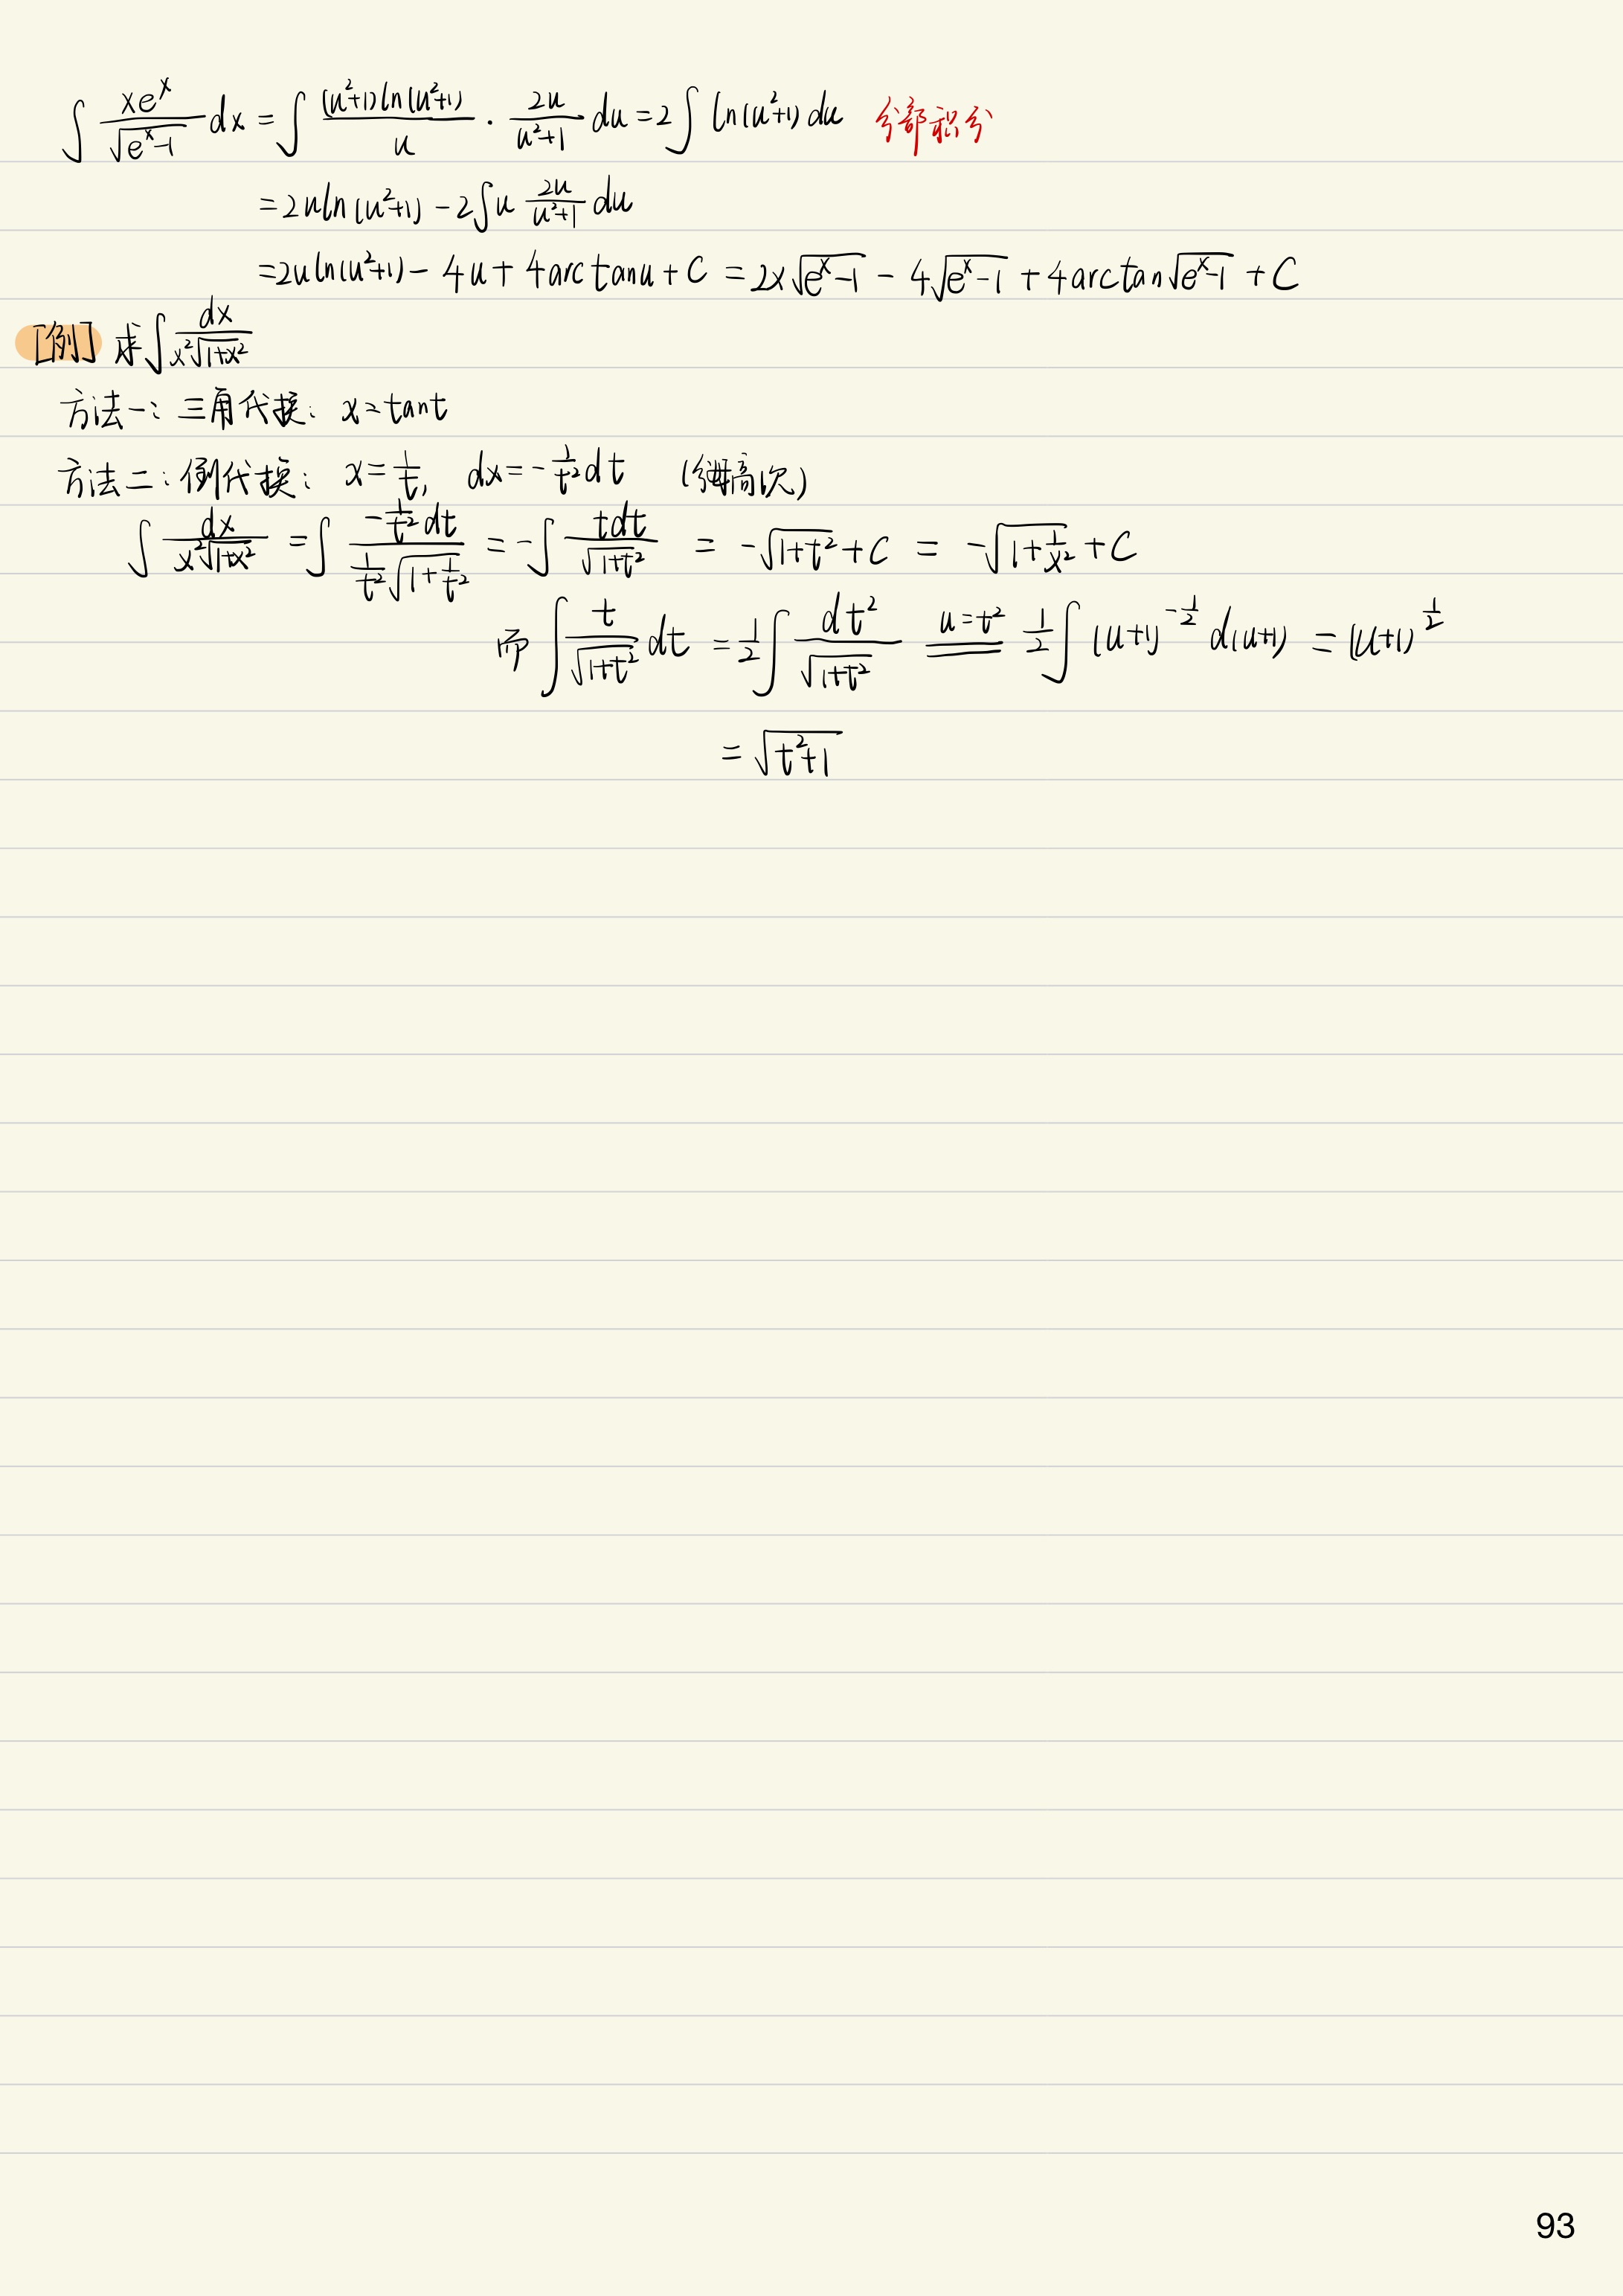 ∫ xe^x/√(e^x-1) dx = ∫ (u²+1)ln(u²+1)/u · 2u/(u²+1) du = 2∫ ln(u²+1) du 分部积分
= 2uln(u²+1) - 2∫u 2u/(u²+1) du
= 2uln(u²+1) - 4u + 4arctanu + C = 2x√(e^x-1) - 4√(e^x-1) + 4arctan√(e^x-1) + C
[例] 求∫ dx/(x²√(1+x²))
方法一: 三角代换: x=tant
方法二: 倒代换: x=1/t, dx=-1/t² dt (分母高次)
∫ dx/(x²√(1+x²)) = ∫ (-1/t² dt)/(1/t² √(1+1/t²)) = -∫ tdt/√(1+t²) = -√(1+t²)+C = -√(1+1/x²)+C
而 ∫ t/√(1+t²) dt = 1/2 ∫ dt²/√(1+t²) u=t² 1/2 ∫ (u+1)^(-1/2) d(u+1) = (u+1)^(1/2)
= √(t²+1)
93